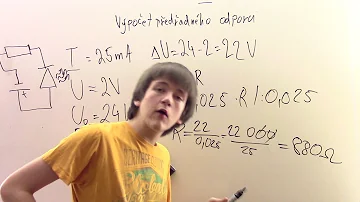 Výpočet předřadného odporu
I = 25mA ΔU = 24-2 = 22V
U = 2V
R
0,025 · R /: 0,025
U₀ = 24
R = 22/0,025 = 22 000/25 = 880Ω